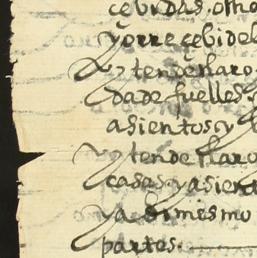 cebidas. otro
y orrecebidel
y tendellaro
dade fuelles
asientos y
y tendellaro
casas y asient
y asimesmo
partes.